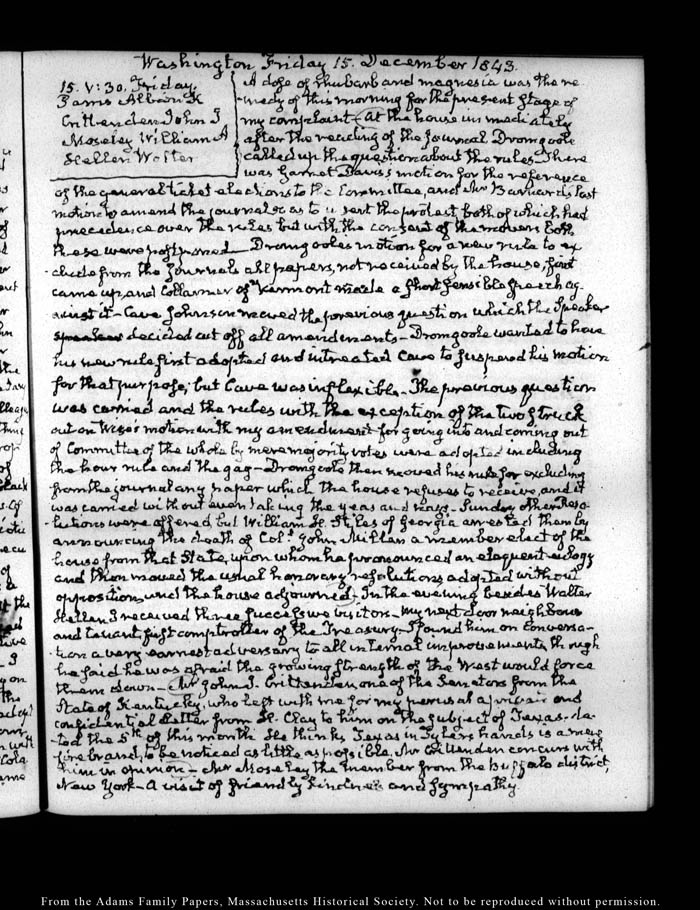 Washington Friday 15. December 1843.
15. V:30. Friday.
Parris Albion K
Crittenden John J
Moseley William A
Hellen Walter
A dose of rhubarb and magnesia was the re
medy of this morning for the present stage of
my complaint – At the house immediately
after the reading of the Journal Dromgoole
called up the question about the rules. There
was Garret Davis's motion for the reference
of the general ticket elections to the Committee, and Mr Barnard's last
motion to amend the journal so as to insert the protest, both of which had
precedence over the rules but with the consent of the movers both
these were postponed – Dromgoole's motion for a new rule to ex
clude from the Journals all papers, not received by the house, first
came up, and Collamer of Vermont made a short sensible speech ag-
ainst it – Cave Johnson moved the previous question which the Speaker
decided cut off all amendments – Dromgoole wanted to have
his new rule first adopted and intreated Cave to suspend his motion
for that purpose; but Cave was inflexible – The previous question
was carried and the rules with the exception of the two struck
out on Wise's motion with my amendment for going into and coming out
of Committee of the whole by mere majority votes were adopted including
the hour rule and the gag – Dromgoole then moved his rule for excluding
from the journal any paper which the house refuses to receive, and it
was carried without even taking the yeas and nays – Sundry other Reso-
lutions were offered, but William H. Stiles of Georgia arrested them by
announcing the death of Col. John Millen a member elect of the
house from that State, upon whom he pronounced an eloquent eulogy
and then moved the usual honorary resolutions adopted without
opposition, and the house adjourned – In the evening besides Walter
Hellen I received three successive visitors – my next door neighbour
and tenant first comptroller of the Treasury – I found him on conversa-
tion a very earnest adversary to all internal improvements though
he said he was afraid the growing strength of the West would force
them down – Mr John J. Crittenden, one of the Senators from the
State of Kentucky, who left with me for my perusal a private and
confidential Letter from H. Clay to him on the subject of Texas – da-
ted the 5th of this month. He thinks Texas in Tyler's hands is a mere
firebrand, to be noticed as little as possible. Mr Crittenden concurs with
him in opinion – Mr Moseley the member from the Buffalo district,
New York – A visit of friendly kindness and sympathy.
From the Adams Family Papers, Massachusetts Historical Society. Not to be reproduced without permission.